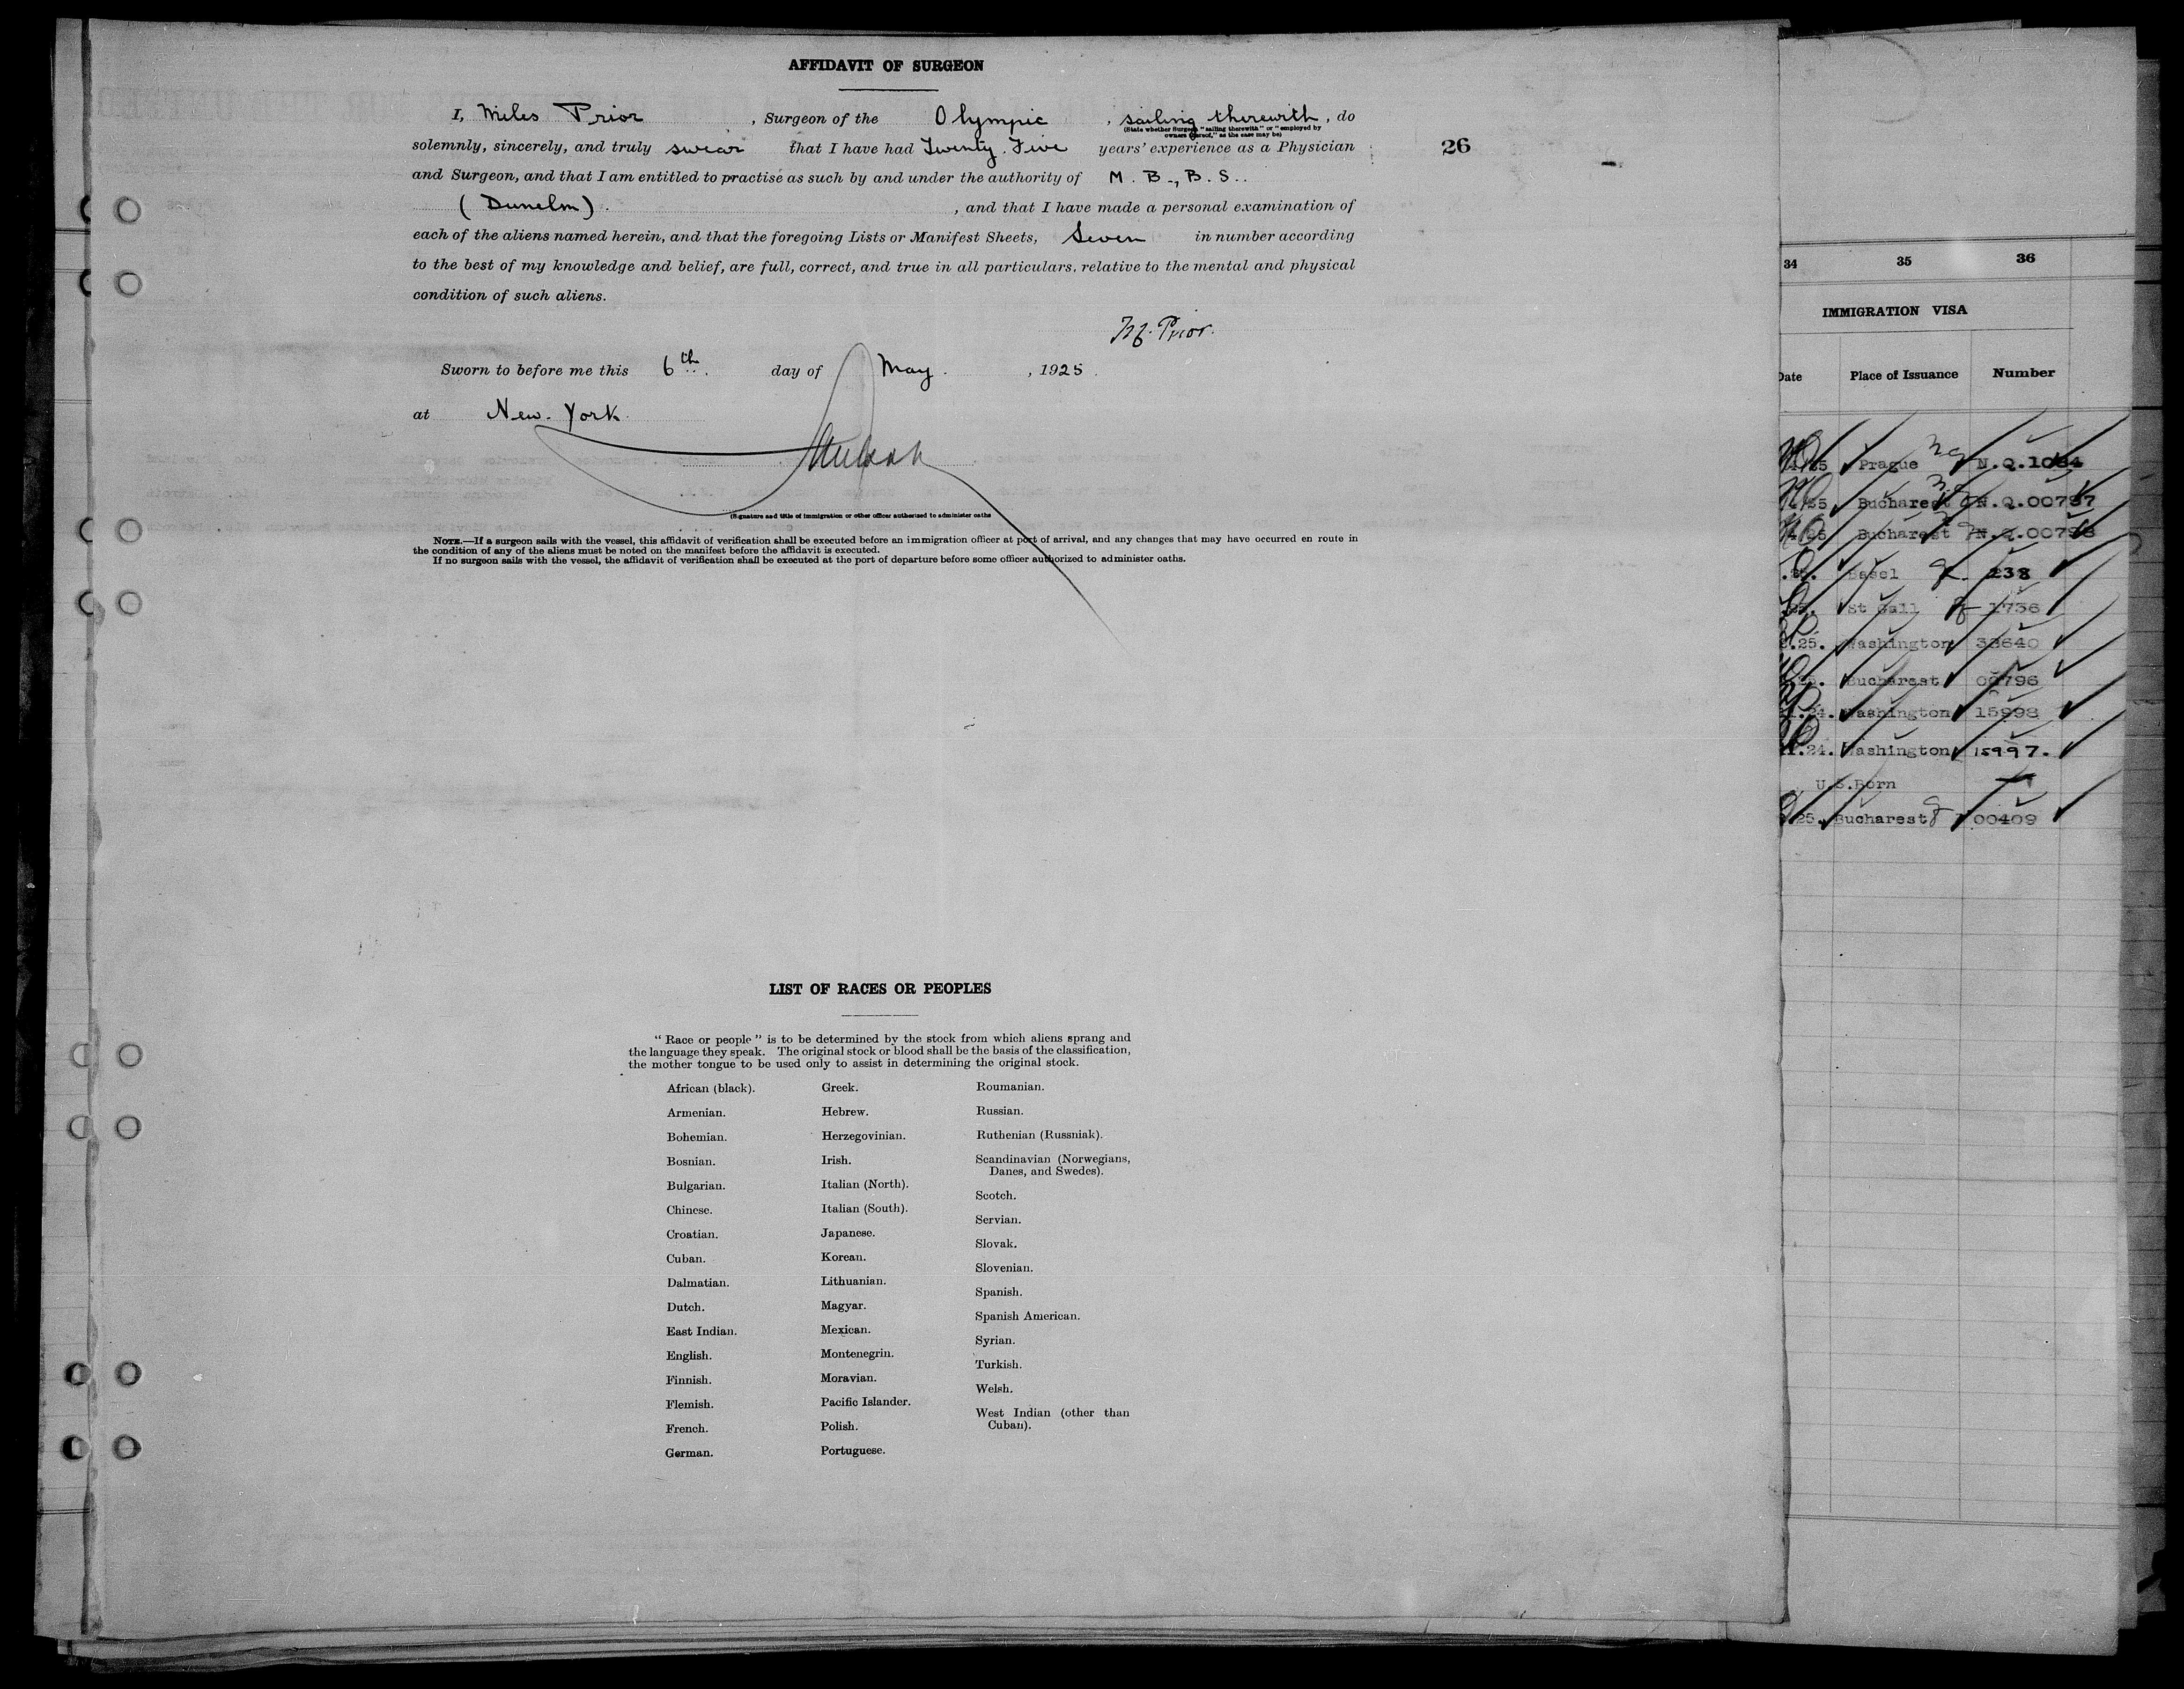 AFFIDAVIT OF SURGEON
I, Miles Prior , Surgeon of the Olympic , sailing therewith , do
(State whether Surgeon "sailing therewith" or "employed by
owners thereof," as the case may be)
solemnly, sincerely, and truly swear that I have had Twenty. Five years' experience as a Physician
26
and Surgeon, and that I am entitled to practise as such by and under the authority of M. B., B. S..
( Dunelm ) . , and that I have made a personal examination of
each of the aliens named herein, and that the foregoing Lists or Manifest Sheets, Seven in number according
to the best of my knowledge and belief, are full, correct, and true in all particulars, relative to the mental and physical
condition of such aliens.
Prior.
Sworn to before me this 6th. day of May. , 1925.
at New. York
(Signature and title of immigration or other officer authorized to administer oaths
NOTE.—If a surgeon sails with the vessel, this affidavit of verification shall be executed before an immigration officer at port of arrival, and any changes that may have occurred en route in
the condition of any of the aliens must be noted on the manifest before the affidavit is executed.
If no surgeon sails with the vessel, the affidavit of verification shall be executed at the port of departure before some officer authorized to administer oaths.
LIST OF RACES OR PEOPLES
"Race or people" is to be determined by the stock from which aliens sprang and
the language they speak. The original stock or blood shall be the basis of the classification,
the mother tongue to be used only to assist in determining the original stock.
African (black).
Armenian.
Bohemian.
Bosnian.
Bulgarian.
Chinese.
Croatian.
Cuban.
Dalmatian.
Dutch.
East Indian.
English.
Finnish.
Flemish.
French.
German.
Greek.
Hebrew.
Herzegovinian.
Irish.
Italian (North).
Italian (South).
Japanese.
Korean.
Lithuanian.
Magyar.
Mexican.
Montenegrin.
Moravian.
Pacific Islander.
Polish.
Portuguese.
Roumanian.
Russian.
Ruthenian (Russniak).
Scandinavian (Norwegians,
Danes, and Swedes).
Scotch.
Servian.
Slovak.
Slovenian.
Spanish.
Spanish American.
Syrian.
Turkish.
Welsh.
West Indian (other than
Cuban).
34 35 36
IMMIGRATION VISA
Date Place of Issuance Number
Prague N.Q.1084
Bucharest N.Q.00797
Bucharest N.Q.00798
Basel 238
St Gall 1736
.25. Washington 33640
Bucharest 00796
.24. Washington 15998
.24. Washington 15997.
U.S.Born
25. Bucharest 00409